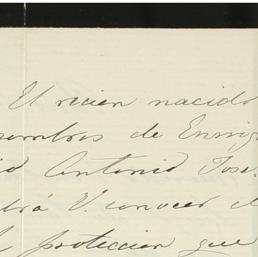 El recien nacido
nombres de Enriq
io Antonio Jose
drá V. conocer el
protección que